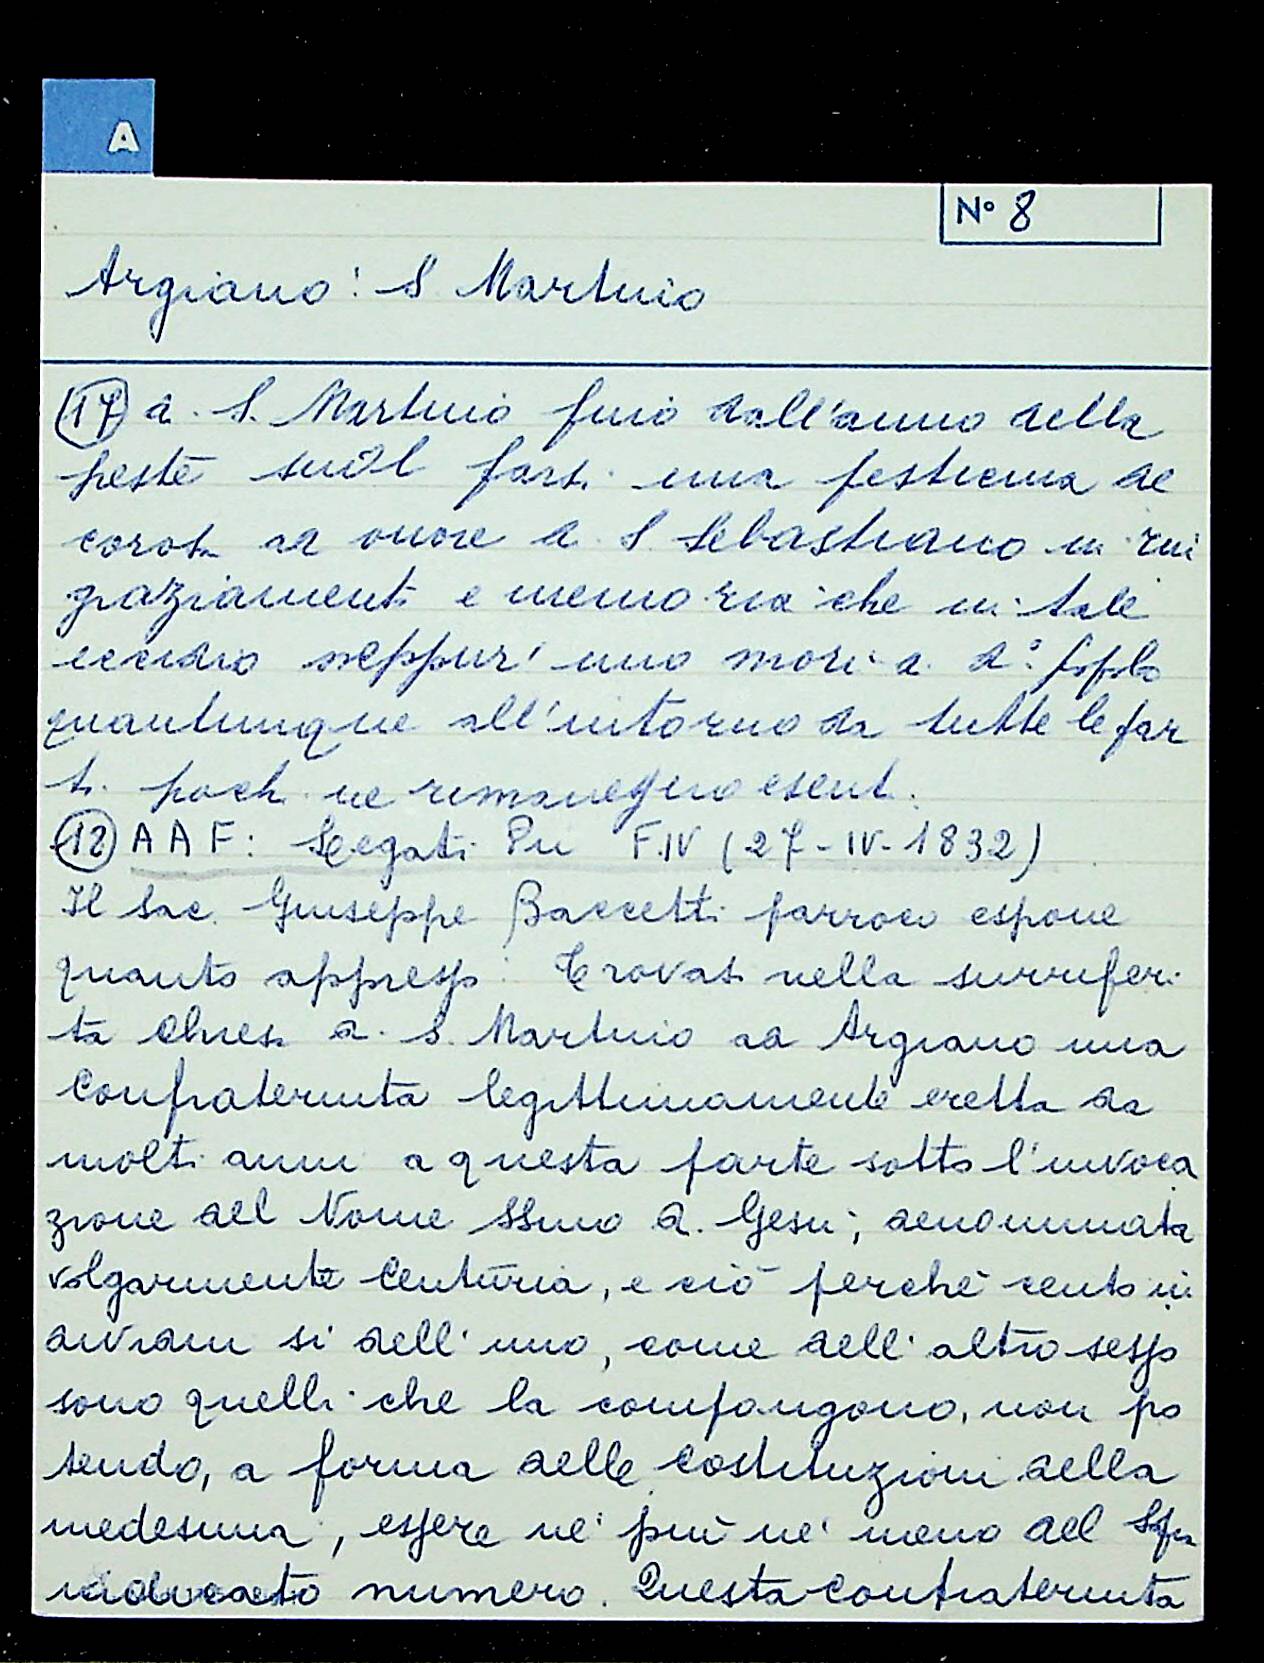 A
N° 8
Argiano: S. Martino
(17) di S. Martino fino dall'anno della
peste suol farsi una festicina de
corosa ad onore di S. Sebastiano in rin
graziamento e memoria che in tale
eccidio neppur' uno morì di d.° popolo
quantunque all'intorno da tutte le par
ti pochi ne rimanessero esenti.
(18) A A F: Legati Pii F.IV (27-IV-1832)
Il Sac. Giuseppe Baccetti parroco espone
quanto appresso: Trovasi nella surriferi
ta Chiesa di S. Martino ad Argiano una
Confraternita legittimamente eretta da
molti anni a questa parte sotto l'invoca
zione del Nome SSmo di Gesù; denominata
volgarmente Centuria, e ciò perché cento in
dividui sì dell'uno, come dell'altro sesso
sono quelli che la compongono, non po
tendo, a forma delle costituzioni della
medesima, essere né più né meno del
numero. Questa confraternita